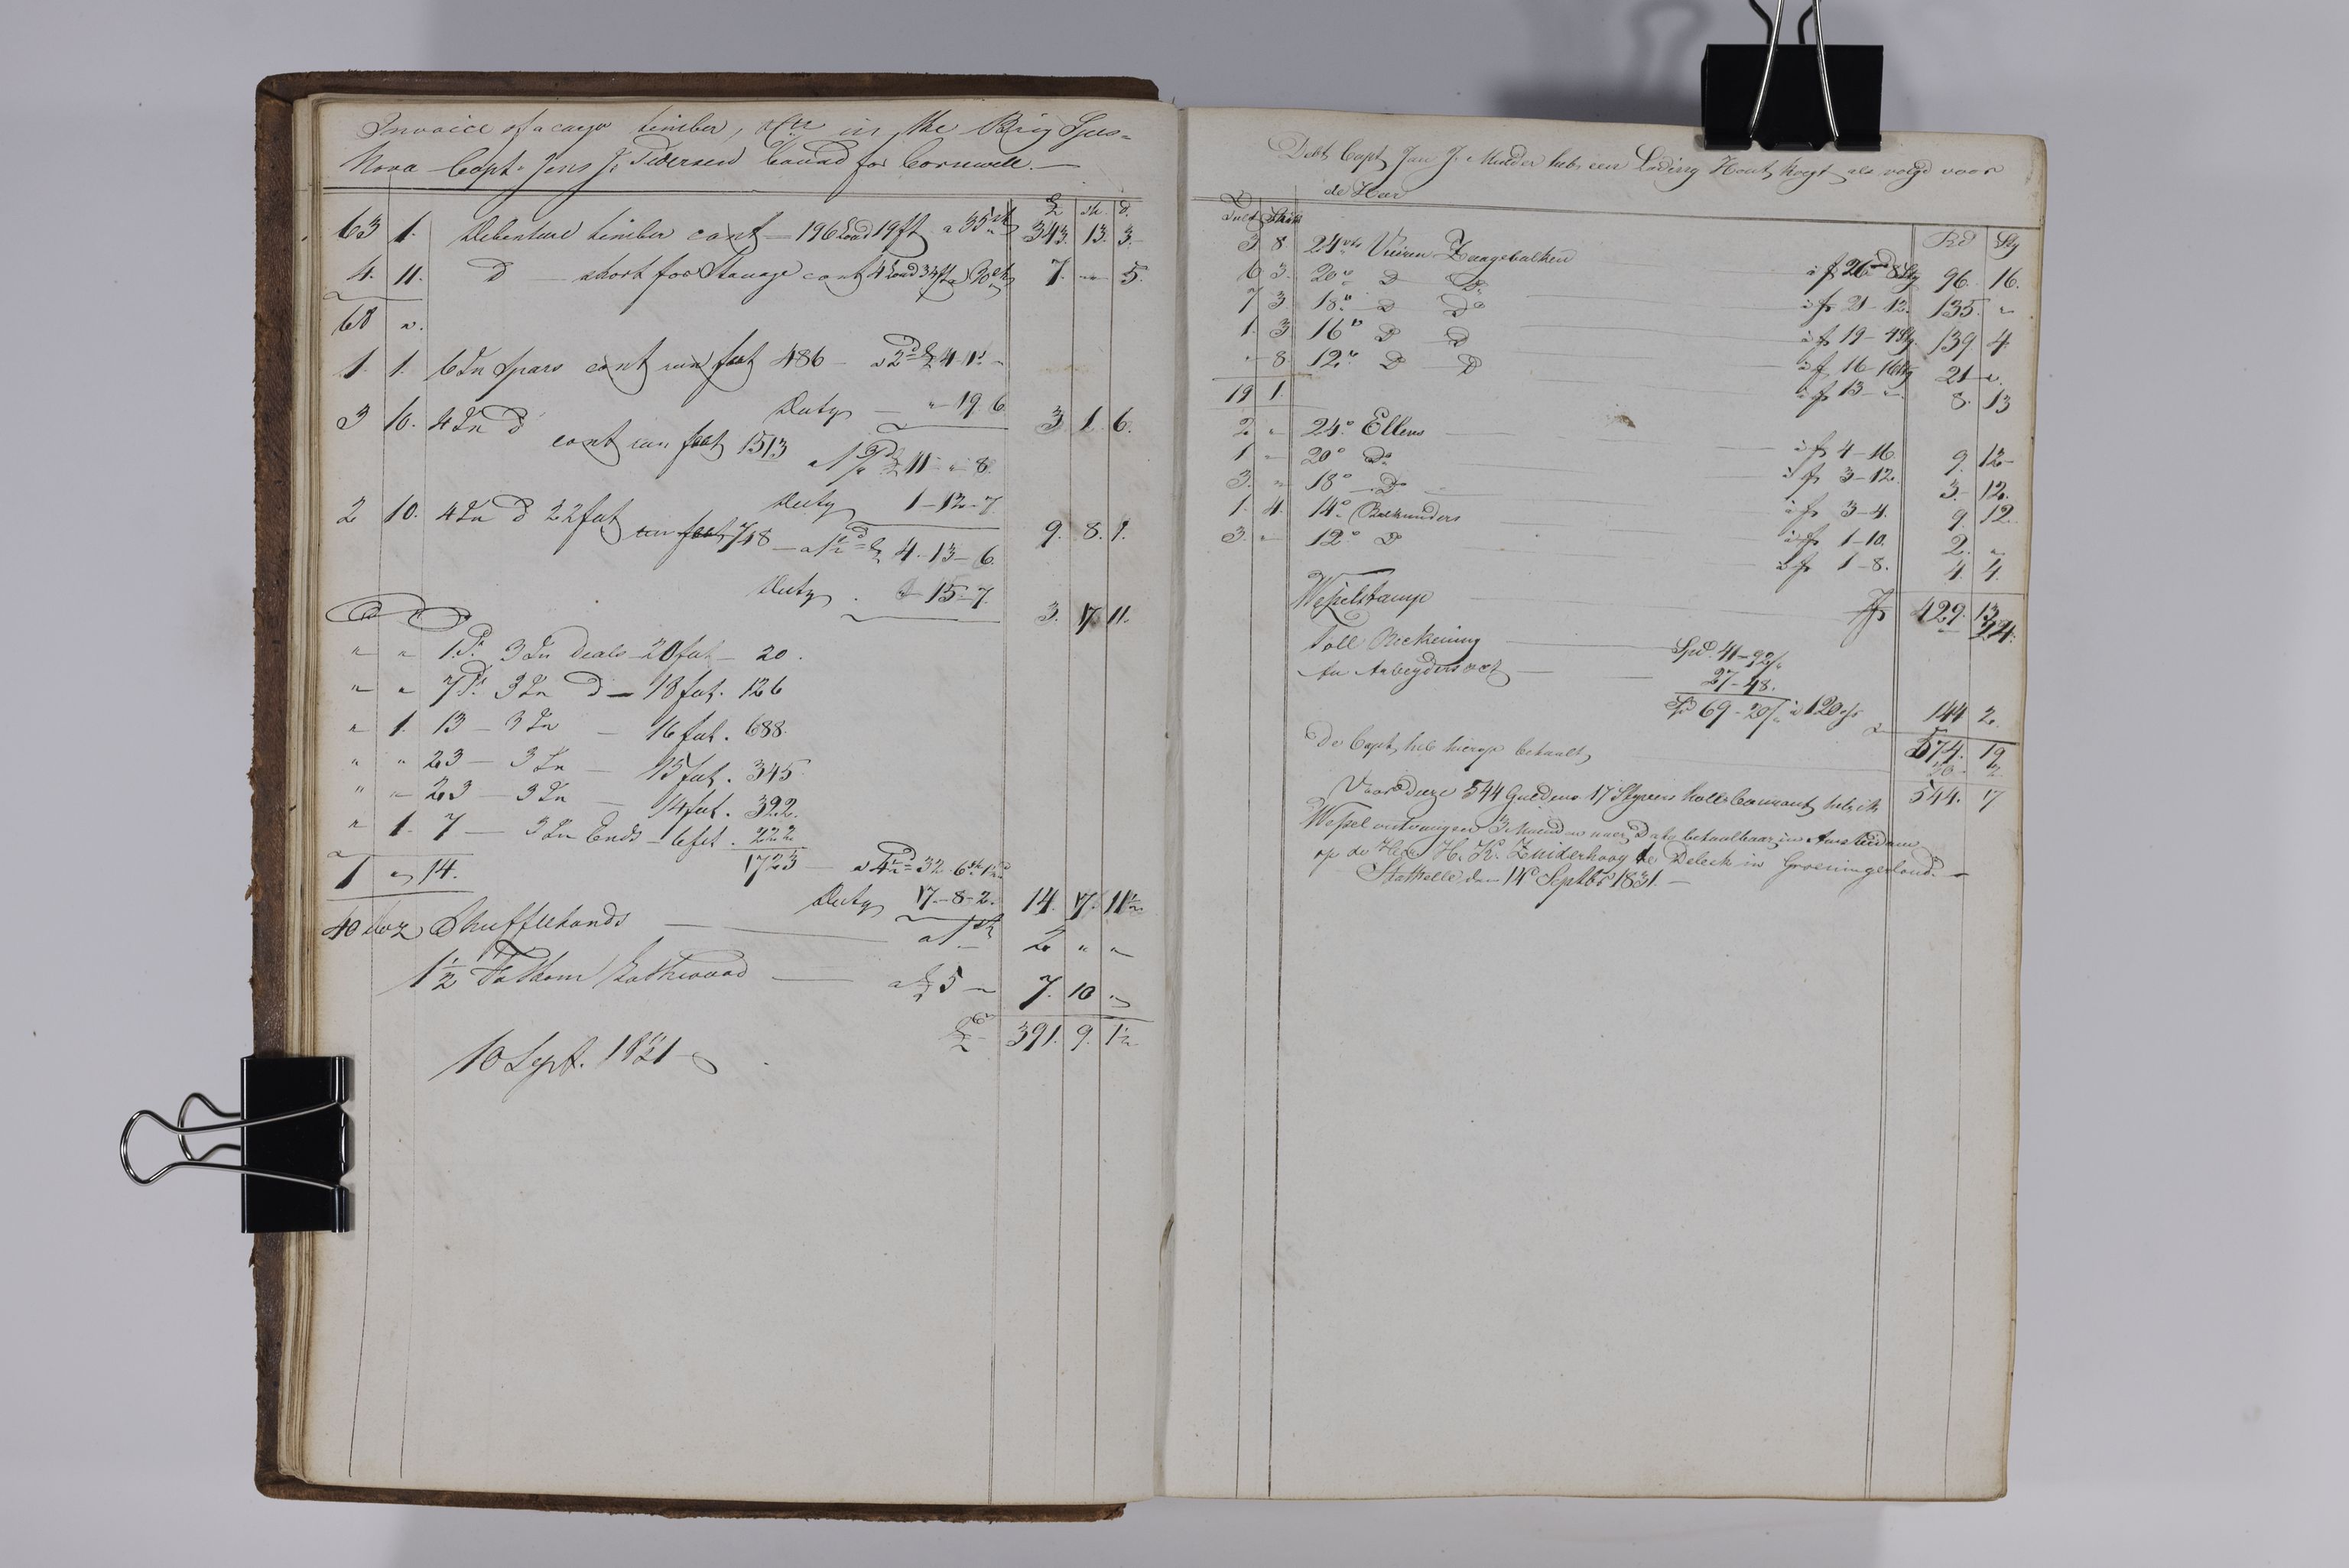 Invoice of a cargo timber, &cc in the Brig Spes=
Nova Capt. Jens J. Pedersen bound for Cornwall.—
£ sh. d.
63 1. Debenture timber cont — 196 Load 19 ft a 35 sh 343. 13. 3.
4. 11. D — short for Stauage cont 4 Load 34 ft a 30 sh 7. — 5.
68 ".
1. 1. 6 In Spars cont run foot 486 — a 2d £ 4. 1. –
Duty — " 19. 6. 3. 1. 6.
3 10. 4 In d
cont run foot 1513 £ 11 – " 8.
Duty 1–12–7 9. 8. 1.
2 10. 4 In d 22 fut run foot 748 — a 1½d £ 4–13–6.
Duty . " 15–7. 3. 17 11.
" " 1 P. 3 In deals – 20 fut – 20.
" " 7 P. 3 In d — 18 fut. 126
" 1. 13 – 3 In – 16 fut. 688.
" " 23 – 3 In – 15 fut. 345.
" " 23 – 3 In – 14 fut. 322.
" 1. 7 — 3 In Ends – 6 fut. 222
1 " 14. 1723 — a 4½d 32. 6 sh 1½d
Duty 17–8–2. 14. 17. 11½
40 doz Shufflehands — a 1 sh 2 " "
1½ Fathom Lathwood — a £ 5 – 7. 10 "
£ 391. 9. 1½
10 Sept. 1831
Debt Capt Jan J. Mulder heb een Lading Hout kogt als volgd voor
de Heer
Rd Sty
3. 8. 24 Vuiren Zaagebalken à f 26 – 8 Sty 96. 16.
6 3. 20" D Do à f 21–12. 135. "
7 3. 18" D Do à f 19–4 Sty. 139 4.
1. 3 16" D D à f 16–16 Sty 21 ".
" 8. 12" D D à f 13 – ". 8. 13
19 1.
2. " 24" Ellens — à f 4–16. 9. 12–
1 " 20" Do à f 3–12. 3. 12.
3. " 18" Do à f 3–4. 9. 12.
1. 4. 14" à f 1–10. 2. ".
3. " 12" D à f 1–8. 4. 4.
f 429. 13
Wexelstamp — 24.
Toll Reckening — Spd. 41–92/
An Arbeydersnoot — 27–48.
Sp 69–20/ à 120 f 144 2.
574. 19
De Capt heb hierop betaalt 30. 2.
544. 17
Voor deeze 544 Guldens 17 Styvers holl Courant heb ik
Wexel ontvangen 3 Maenden naer Dato betaalbaar in Amsterdam
op de Heer H. K. Zuiderhoog te Delck in Groeningerland.—
Stathelle den 14 Septbr 1831.—